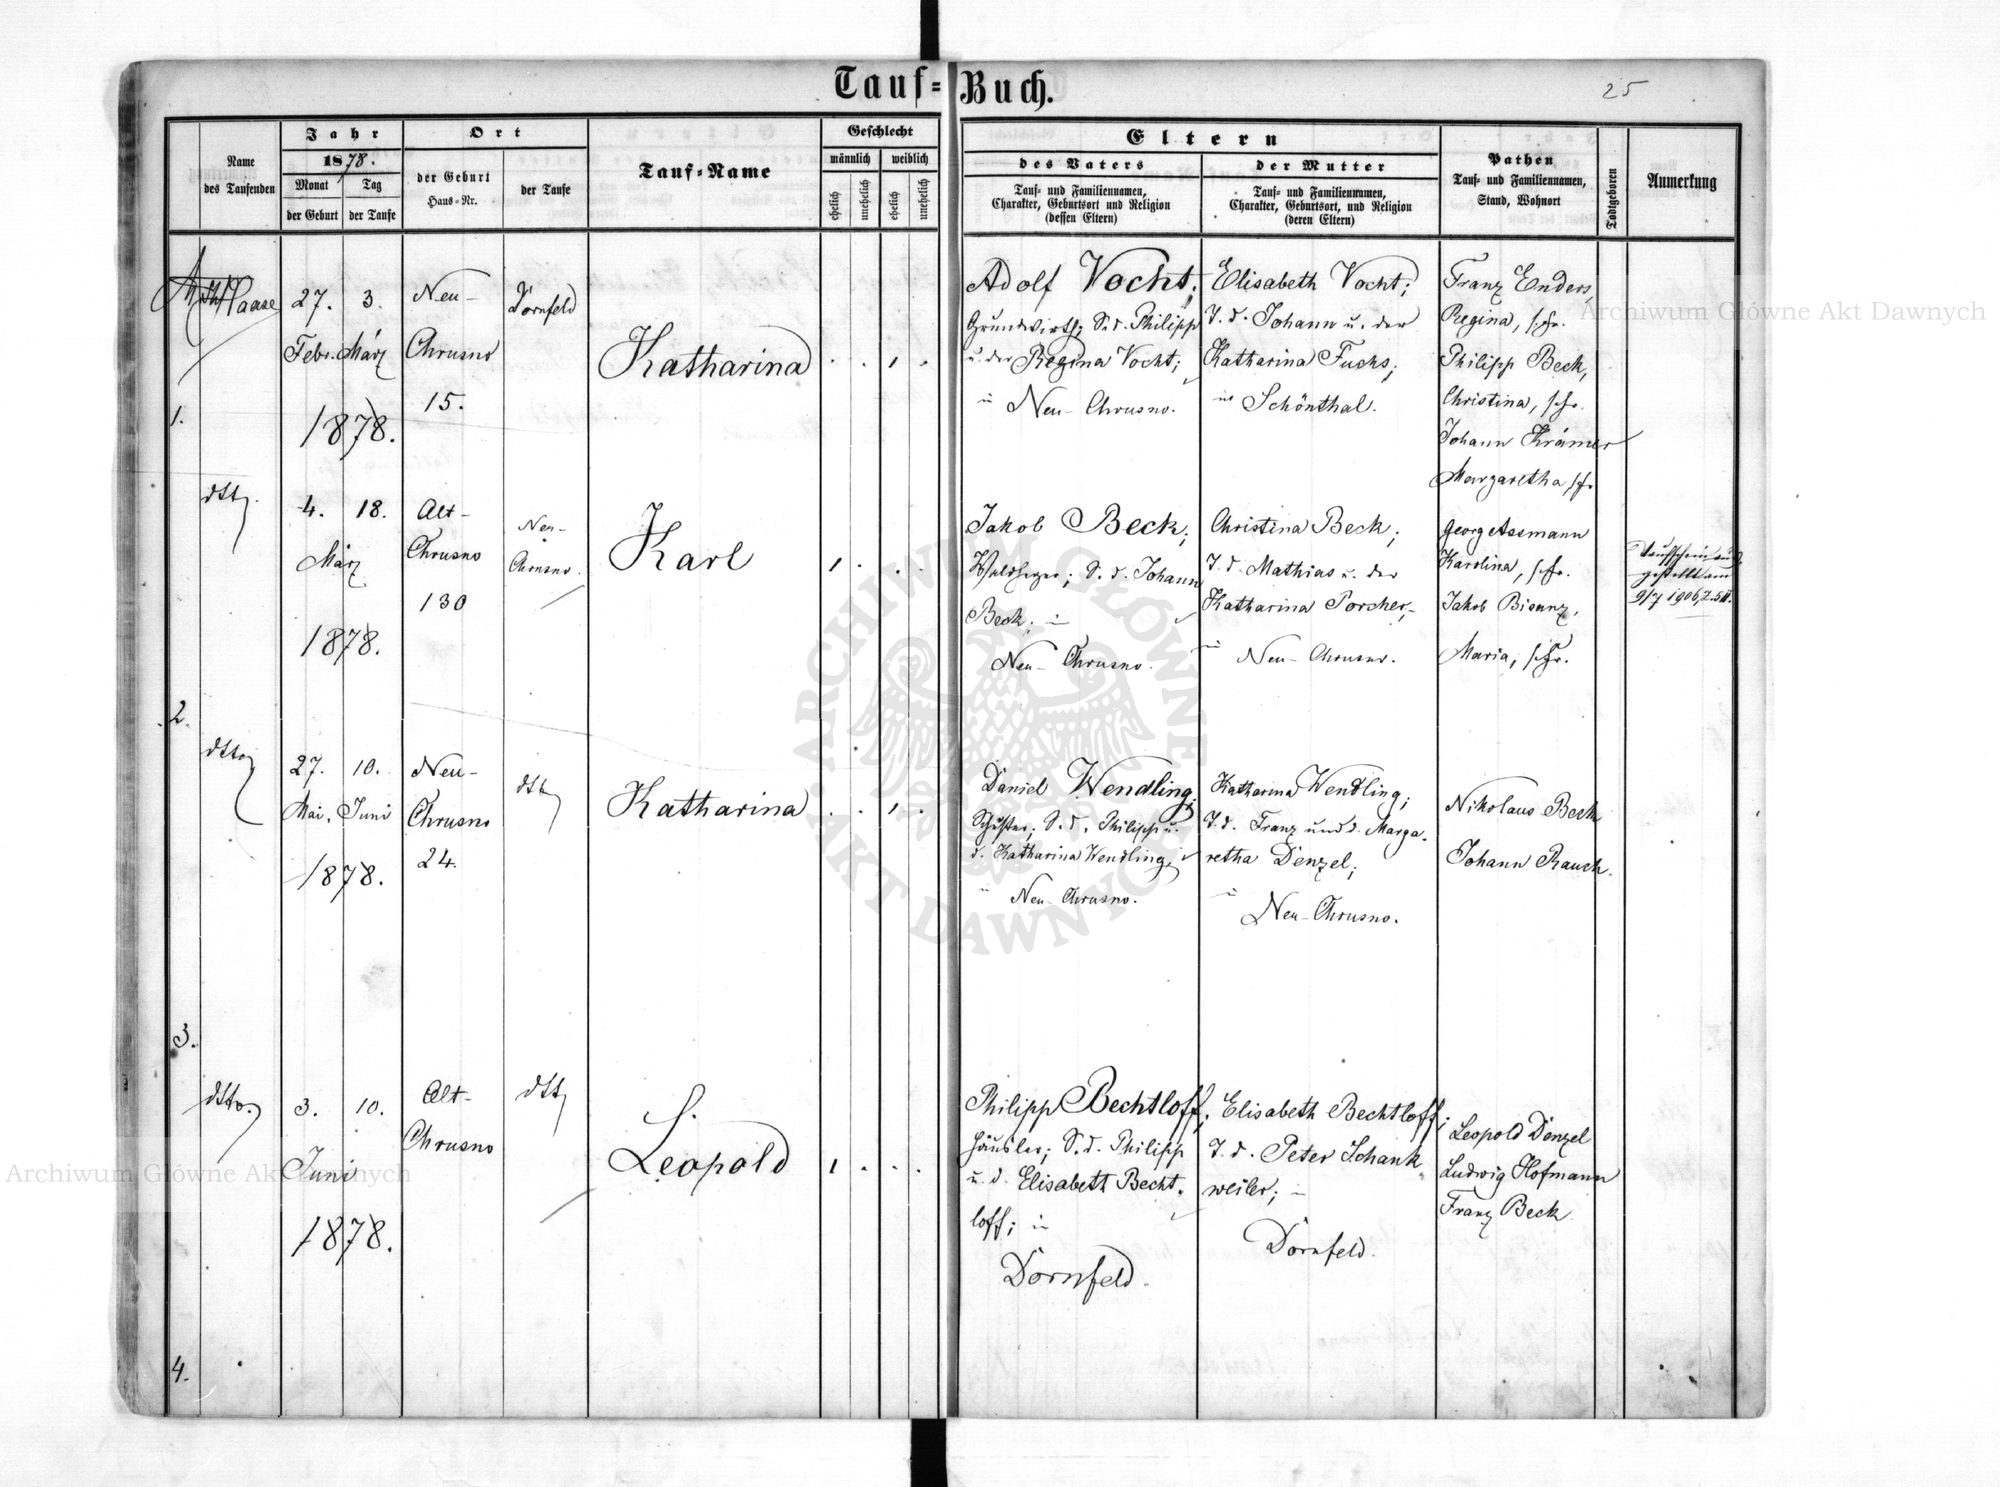 Tauf-Buch.
25
Name
des Taufenden
Jahr
1878.
Monat
Tag
der Geburt
der Taufe
Ort
der Geburt
Haus-Nr.
der Taufe
Tauf-Name
Geschlecht
männlich
weiblich
ehelich
unehelich
ehelich
unehelich
Eltern
des Vaters
Tauf- und Familiennamen,
Charakter, Geburtsort und Religion
(dessen Eltern)
der Mutter
Tauf- und Familiennamen,
Charakter, Geburtsort, und Religion
(deren Eltern)
Pathen
Tauf- und Familiennamen,
Stand, Wohnort
Todtgeboren
Anmerkung
1.
Haase
27. 3.
Febr. März
1878.
Neu-
Chrusno
15.
Dornfeld
Katharina
Adolf Vocht;
Grundwirth; S. d. Philipp
u. der Regina Vocht;
in
Neu-Chrusno.
Elisabeth Vocht;
T. d. Johann u. der
Katharina Fuchs;
in Schönthal.
Franz Enders,
Regina, s. Fr.
Philipp Beck,
Christina, s. Fr.
Johann Krämer
Margaretha s. Fr.
2.
dtto.
4. 18.
März
1878.
Alt-
Chrusno
130
Neu-
Chrusno.
Karl
1
Jakob Beck;
S. d. Johann
Beck; in
Neu-Chrusno.
Christina Beck;
T. d. Mathias u. der
Katharina Porcher;
in
Neu-Chrusno.
Georg Assmann
Karolina, s. Fr.
Jakob Bisanz,
Maria, s. Fr.
Taufschein aus-
gestellt am
9/7 1906, Z. 511.
3.
dtto
27. 10.
Mai. Juni
1878.
Neu-
Chrusno
24.
dtto
Katharina
1
Daniel Wendling;
Schuster; S. d. Philipp u.
d. Katharina Wendling;
in
Neu-Chrusno.
Katharina Wendling;
T. d. Franz und d. Marga-
retha Denzel;
in
Neu-Chrusno.
Nikolaus Beck
Johann Rauch.
4.
dtto.
3. 10.
Juni
1878.
Alt-
Chrusno
dtto
Leopold
1
Philipp Bechtloff;
Häusler; S. d. Philipp
u. d. Elisabeth Becht-
loff; in
Dornfeld.
Elisabeth Bechtloff;
T. d. Peter Schank-
weiler; in
Dornfeld.
Leopold Denzel
Ludwig Hofmann
Franz Beck
Archiwum Główne Akt Dawnych
Archiwum Główne Akt Dawnych
ARCHIWUM GŁÓWNE
AKT DAWNYCH